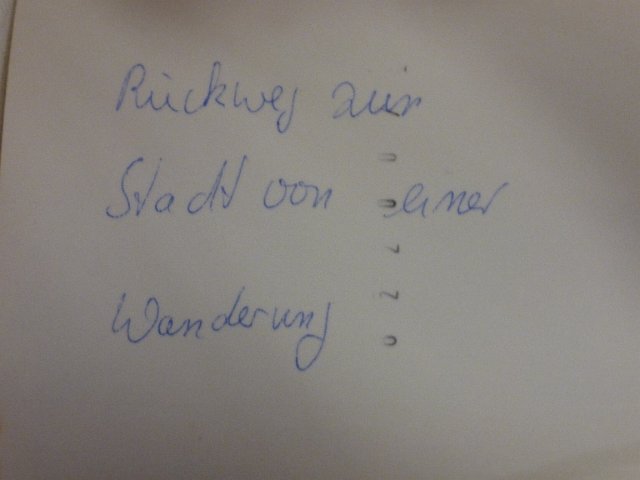 Rückweg zur
Stadt von einer
Wanderung